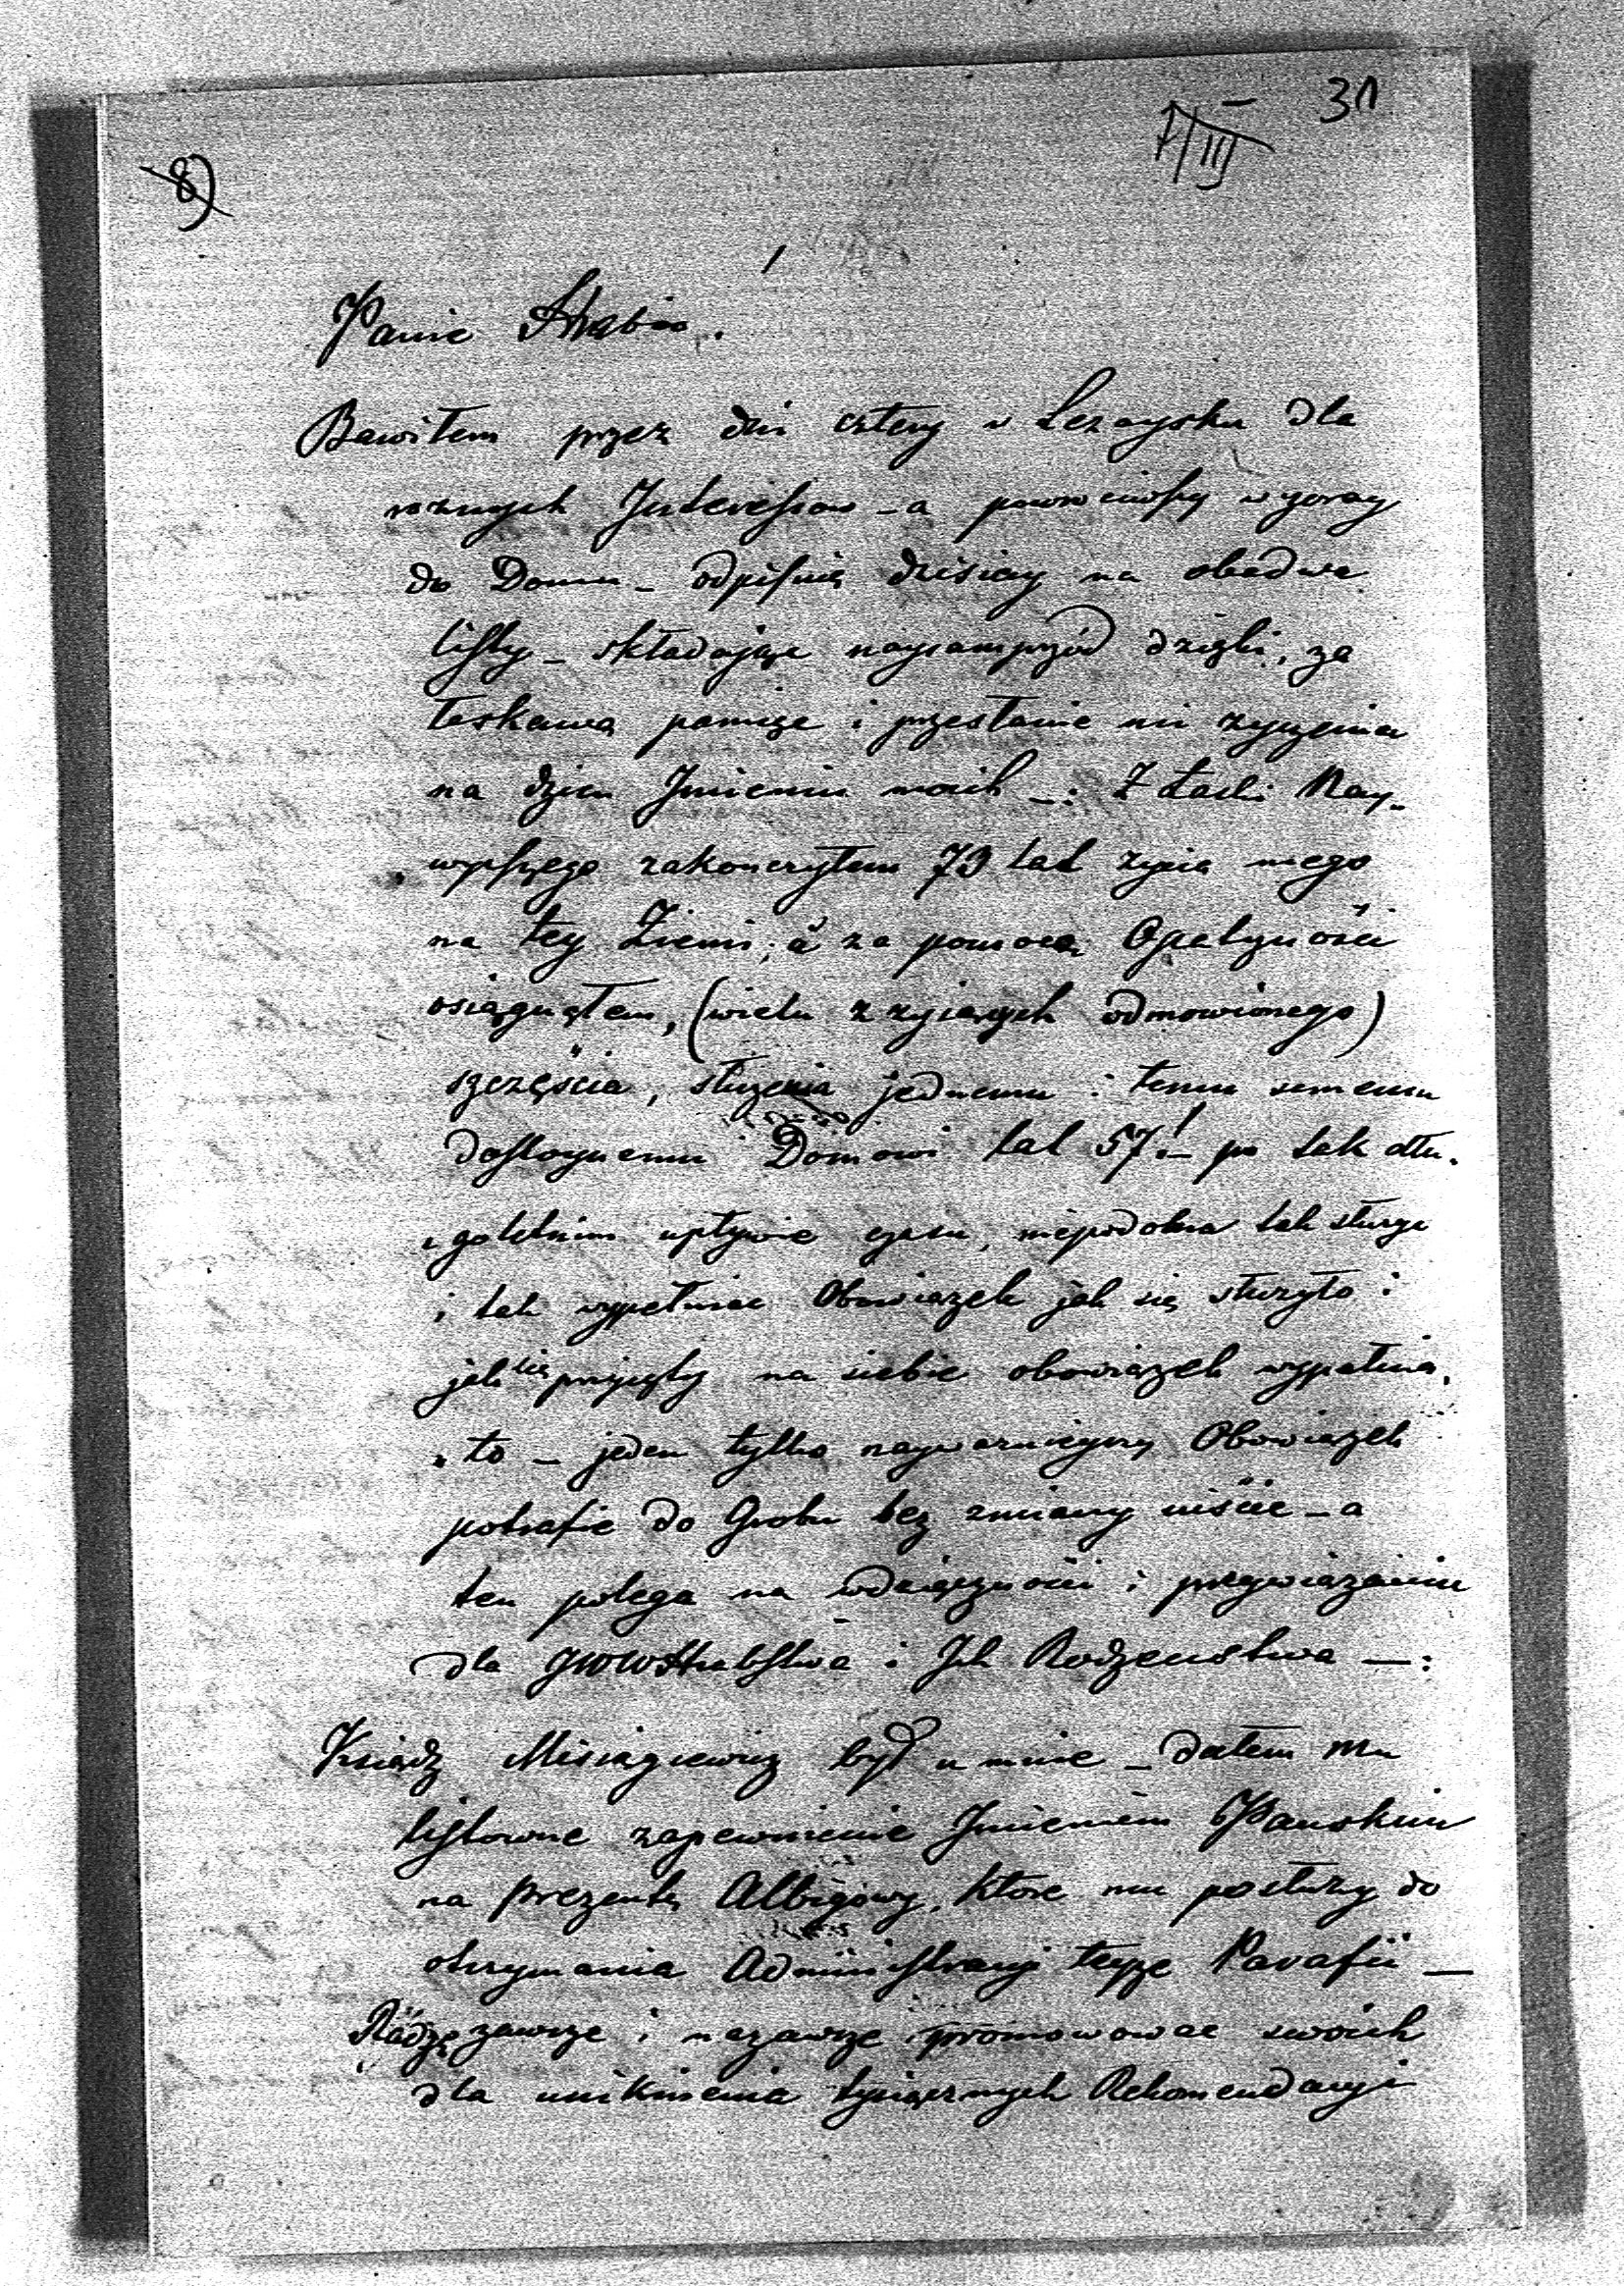 31
7/III
8)
Panie Hrabio.
Bawiłem przez dni cztery w Leżaysku dla
roznych Interessow - a powrociwszy wczoray
do Domu - odpisuię dzisiay na obadwa
listy - składając naysamprzód dzięki, za
łaskawą pamięc i przesłanie mi zyczenia
na dzien Imienin moich -: Z Łaski Nay-
wyszszego zakonczyłem 73 lat zycia mego
na tey Ziemi, a za pomocą Opatrznosci
osiągnąłem, (wielu z zyiących odmowionego)
szczęścia, słuzenia jednemu i temu samemu
dostoynemu Domowi lat 57! - po tak dłu-
goletnim upływie czasu, niepodobna tak słuzyc
i tak wypełniac Obowiązek jak się słuzyło i
jak się przyjęty na siebie obowiązek wypełnia-
ło - jeden tylko naywaznieyszy Obowiązek
potrafie do Grobu bez zmiany uiścic - a
ten polega na wdzięcznosci i przywiązaniu
dla JWW Hrabstwa i Ich Rodzenstwa -:
Ksiądz Misiągiewicz był u mnie - dałem mu
listowne zapewnienie Imieniem Panskim
na prezentę Albigowy, ktore mu posłuzy do
otrzymania Administracyi teyze Parafii -
Radzę zawsze i nazawsze promowowac swoich
dla uniknienia tysiącznych Rekomendacyi